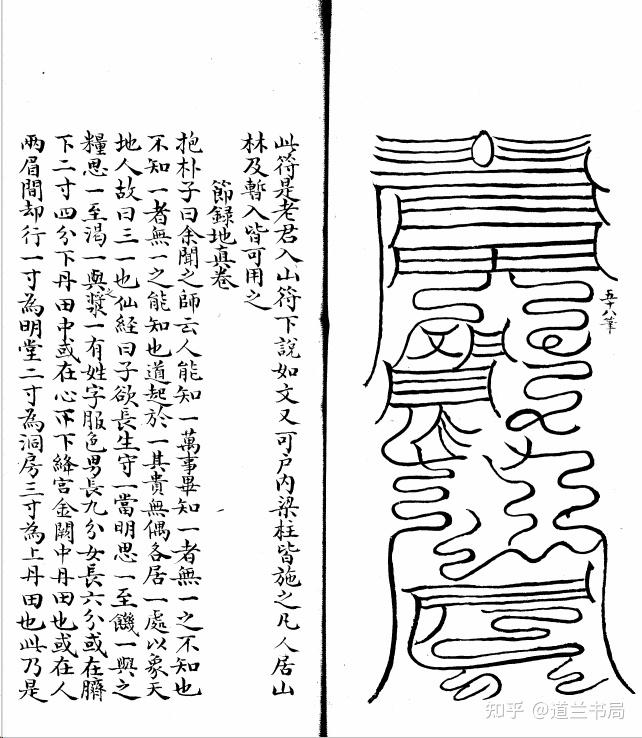 五十八筆
此符是老君入山符下說如文又可戶内梁柱皆施之凡人居山
林及暫入皆可用之
節録地真卷
抱朴子曰余聞之師云人能知一萬事畢知一者無一之不知也
不知一者無一之能知也道起於一其貴無偶各居一處以象天
地人故曰三一也仙経曰子欲長生守一當明思一至饑一與之
糧思一至渴一與漿一有姓字服色男長九分女長六分或在臍
下二寸四分下丹田中或在心下下絳宫金闕中丹田也或在人
兩眉間却行一寸為明堂二寸為洞房三寸為上丹田也此乃是
知乎 @道兰书局